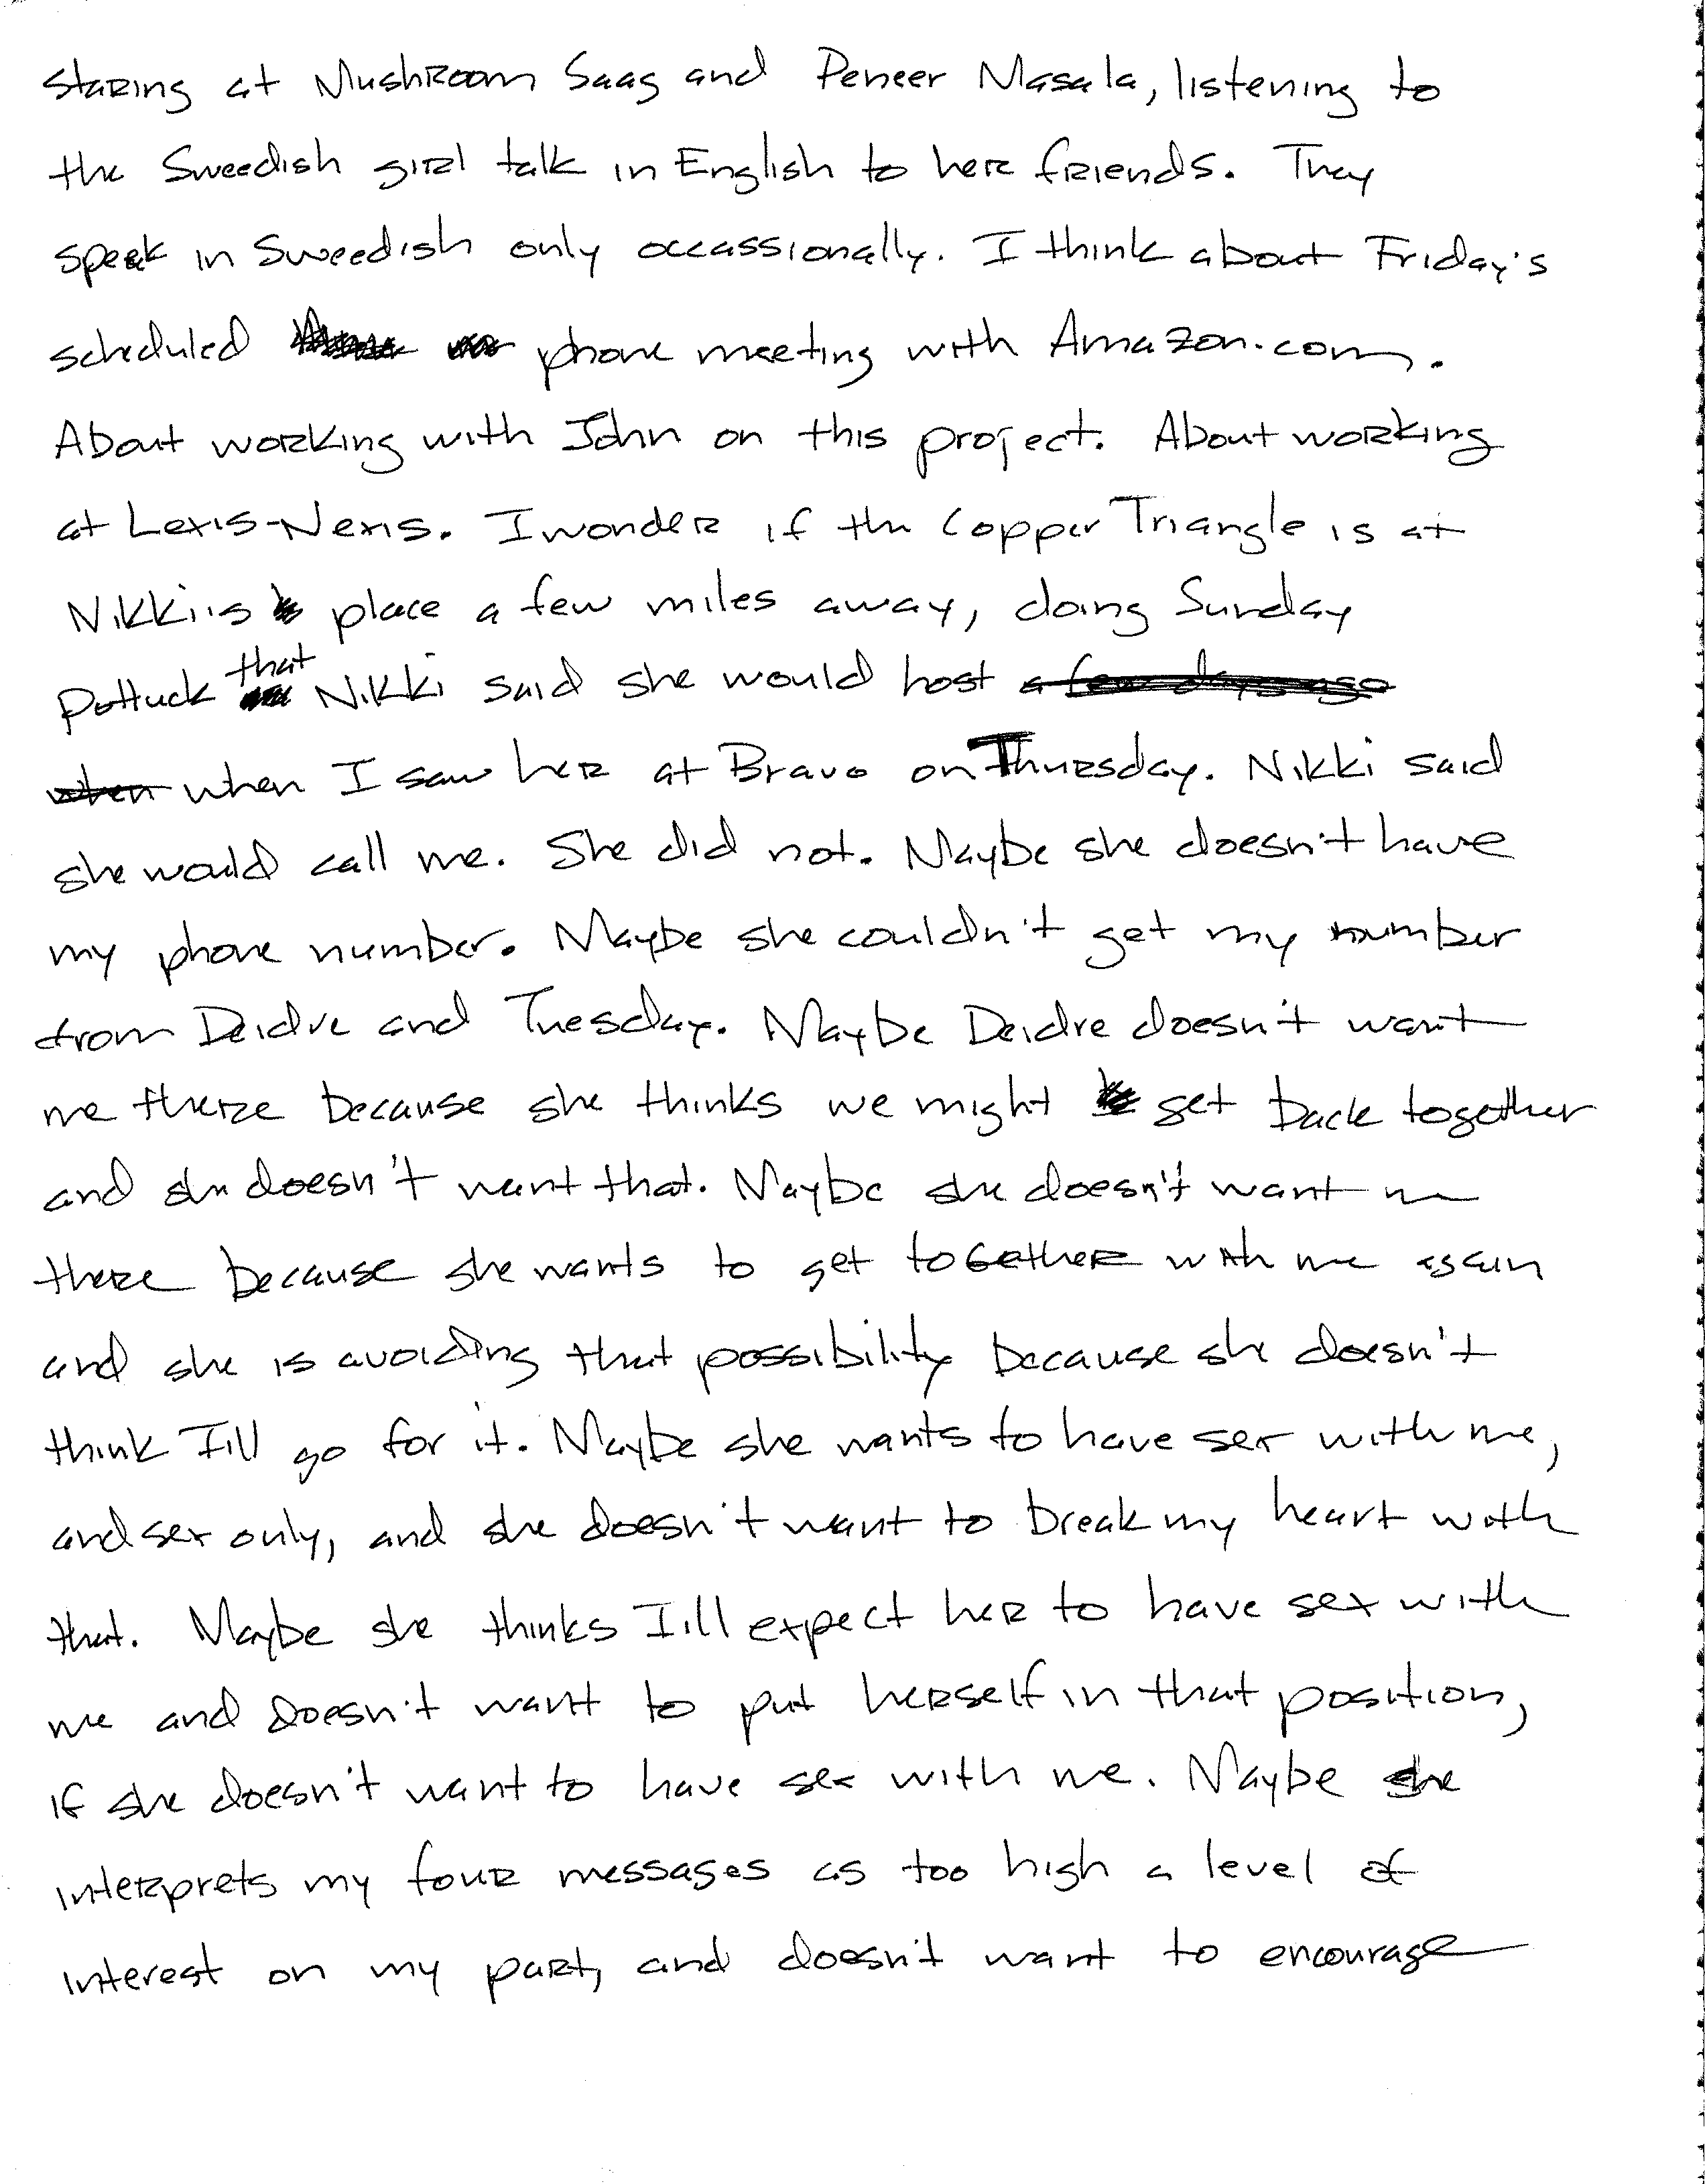 Staring at Mushroom Saag and Peneer Masala, listening to
the Sweedish girl talk in English to her friends. They
speak in Sweedish only occassionally. I think about Friday's
scheduled phone meeting with Amazon.com.
About working with John on this project. About working
at Lexis-Nexis. I wonder if the Copper Triangle is at
Nikki's place a few miles away, doing Sunday
Pottuck that Nikki said she would host a few days ago
when when I saw her at Bravo on Thursday. Nikki said
she would call me. She did not. Maybe she doesn't have
my phone number. Maybe she couldn't get my number
from Deidre and Tuesday. Maybe Deidre doesn't want
me there because she thinks we might get back together
and she doesn't want that. Maybe she doesn't want me
there because she wants to get together with me again
and she is avoiding that possibility because she doesn't
think I'll go for it. Maybe she wants to have sex with me,
and sex only, and she doesn't want to break my heart with
that. Maybe she thinks I'll expect her to have sex with
me and doesn't want to put herself in that position,
if she doesn't want to have sex with me. Maybe she
interprets my four messages as too high a level of
interest on my part, and doesn't want to encourage